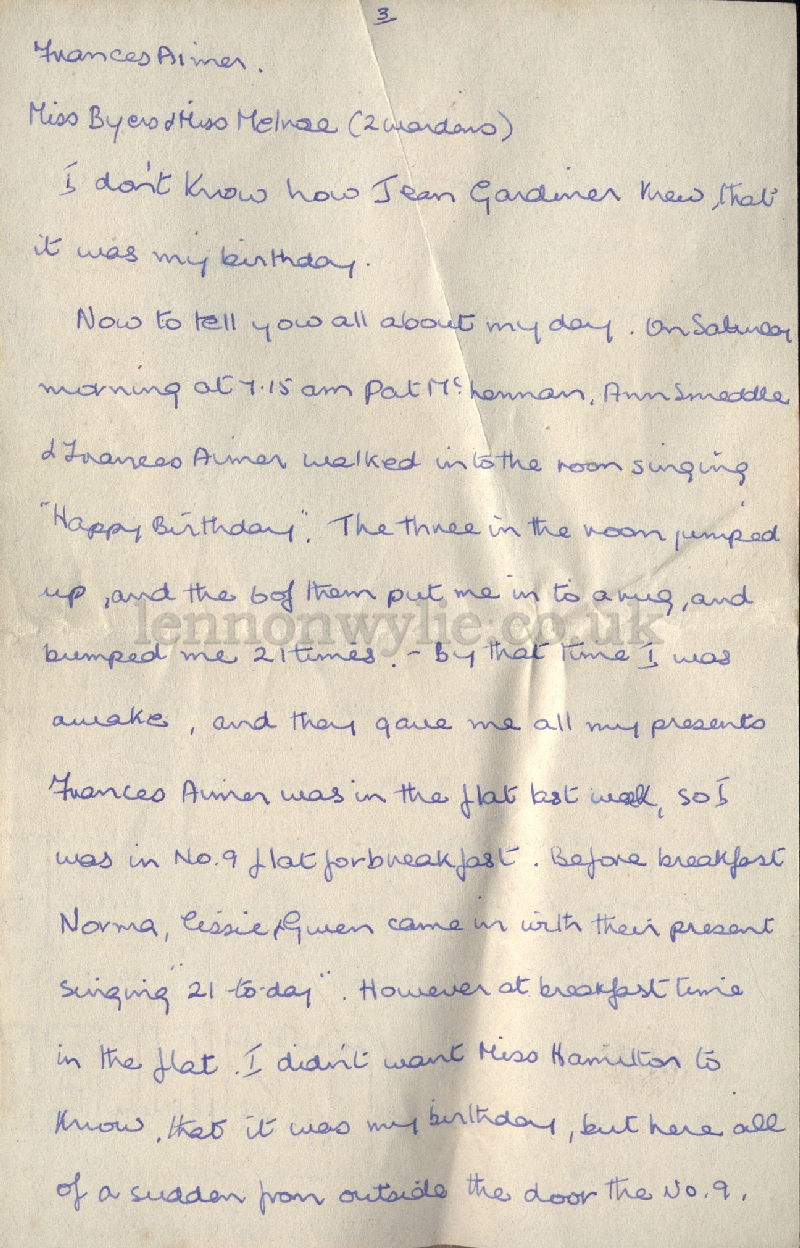 3
Frances Aimer.
Miss Byers & Miss McInroe (2 wardens)
I don't know how Jean Gardiner knew, that
it was my birthday.
Now to tell you all about my day. On Saturday
morning at 7.15 am Pat McLennan, Ann Smeddle
& Frances Aimer walked in to the room singing
"Happy Birthday". The three in the room jumped
up, and the 6 of them put me in to a rug, and
lennonwylie.co.uk
bumped me 21 times. - By that time I was
awake, and they gave me all my presents
Frances Aimer was in the flat last week, so I
was in No. 9 flat for breakfast. Before breakfast
Norma, Cissie, & Gwen came in with their present
singing "21 to-day". However at breakfast time
in the flat. I didn't want Miss Hamilton to
know, that it was my birthday, but here all
of a sudden from outside the door the No. 9.